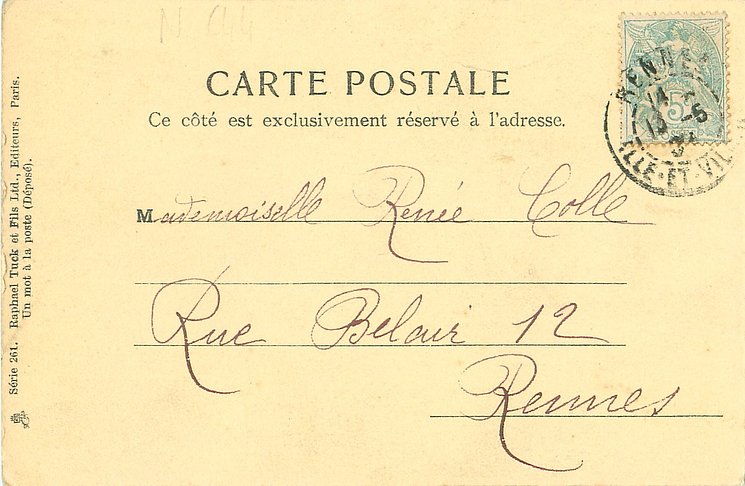 CARTE POSTALE
Ce côté est exclusivement réservé à l'adresse.
Mademoiselle Renée Colle
Rue Belair 12
Rennes
Série 261. Raphael Tuck et Fils Ltd., Editeurs, Paris.
Un mot à la poste (Déposé).
RENNES
5
ILLE-ET-VIL